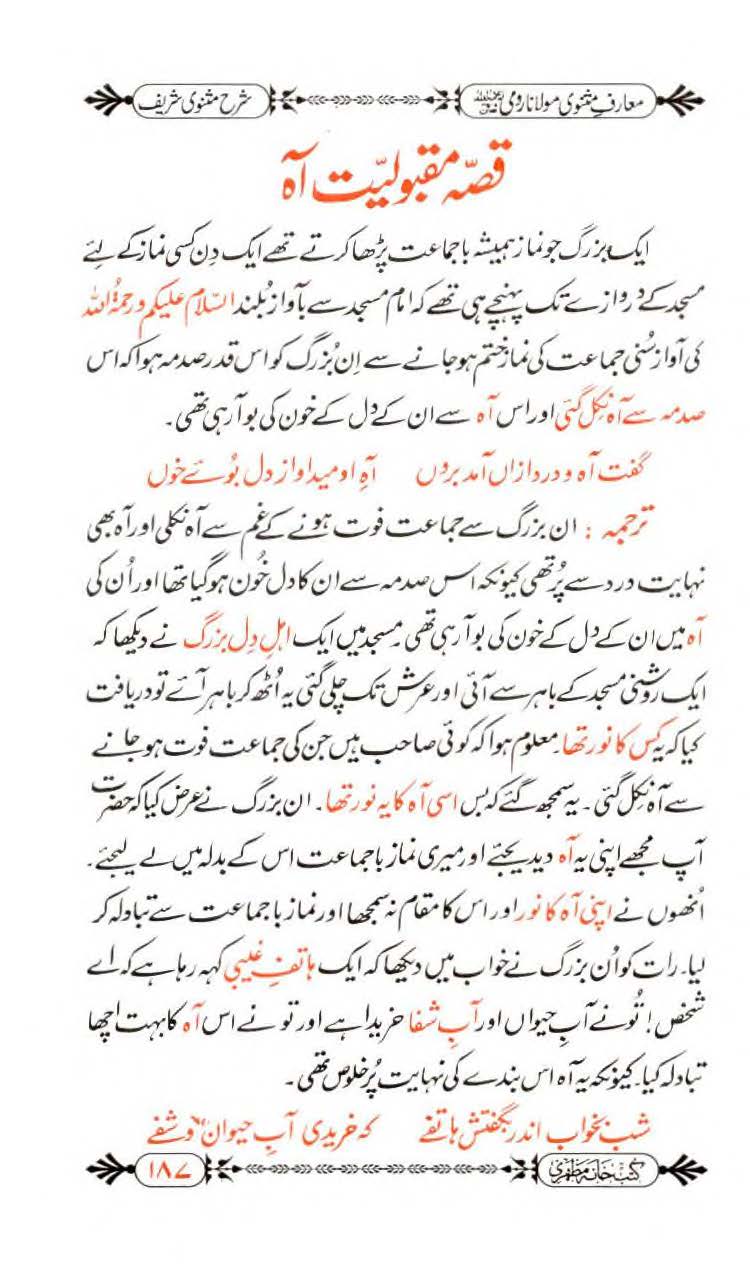 معارفِ مثنوی مولانا رومی رحمۃ اللہ علیہ
شرح مثنوی شریف
قصّہ مقبولیّت آہ
ایک بزرگ جو نماز ہمیشہ باجماعت پڑھا کرتے تھے ایک دِن کسی نماز کے لئے
مسجد کے دروازے تک پہنچے ہی تھے کہ امام مسجد سے بآواز بُلند السّلام علیکم ورحمۃُ اللہ
کی آواز سُنی جماعت کی نماز ختم ہوجانے سے اِن بُزرگ کو اس قدر صدمہ ہوا کہ اس
صدمہ سے آہ نکل گئی اور اس آہ سے ان کے دل کے خون کی بو آرہی تھی۔
گفت آہ و درد ازاں آمد بروں آہِ او میداد از دل بُوئے خوں
ترجمہ : ان بزرگ سے جماعت فوت ہونے کے غم سے آہ نکلی اور آہ بھی
نہایت درد سے پُر تھی کیونکہ اس صدمہ سے ان کا دل خُون ہوگیا تھا اور اُن کی
آہ میں ان کے دل کے خون کی بو آرہی تھی۔ مسجد میں ایک اہلِ دِل بزرگ نے دیکھا کہ
ایک روشنی مسجد کے باہر سے آئی اور عرش تک چلی گئی یہ اُٹھ کر باہر آئے تو دریافت
کیا کہ یہ کس کا نور تھا۔ معلوم ہوا کہ کوئی صاحب ہیں جن کی جماعت فوت ہوجانے
سے آہ نکل گئی۔ یہ سمجھ گئے کہ بس اسی آہ کا یہ نور تھا۔ ان بزرگ نے عرض کیا کہ حضرت
آپ مجھے اپنی یہ آہ دیدیجئے اور میری نماز باجماعت اس کے بدلہ میں لے لیجئے۔
اُنھوں نے اپنی آہ کا نور اور اس کا مقام نہ سمجھا اور نماز باجماعت سے تبادلہ کر
لیا۔ رات کو اُن بزرگ نے خواب میں دیکھا کہ ایک ہاتفِ غیبی کہہ رہا ہے کہ اے
شخص! تُو نے آبِ حیواں اور آبِ شفا خریدا ہے اور تو نے اس آہ کا بہت اچھا
تبادلہ کیا۔ کیونکہ یہ آہ اس بندے کی نہایت پُرخلوص تھی۔
شب بخواب اندر بگفتش ہاتفے کہ خریدی آبِ حیوان و شفے
کتب خانہ مظہری
۱۸۷